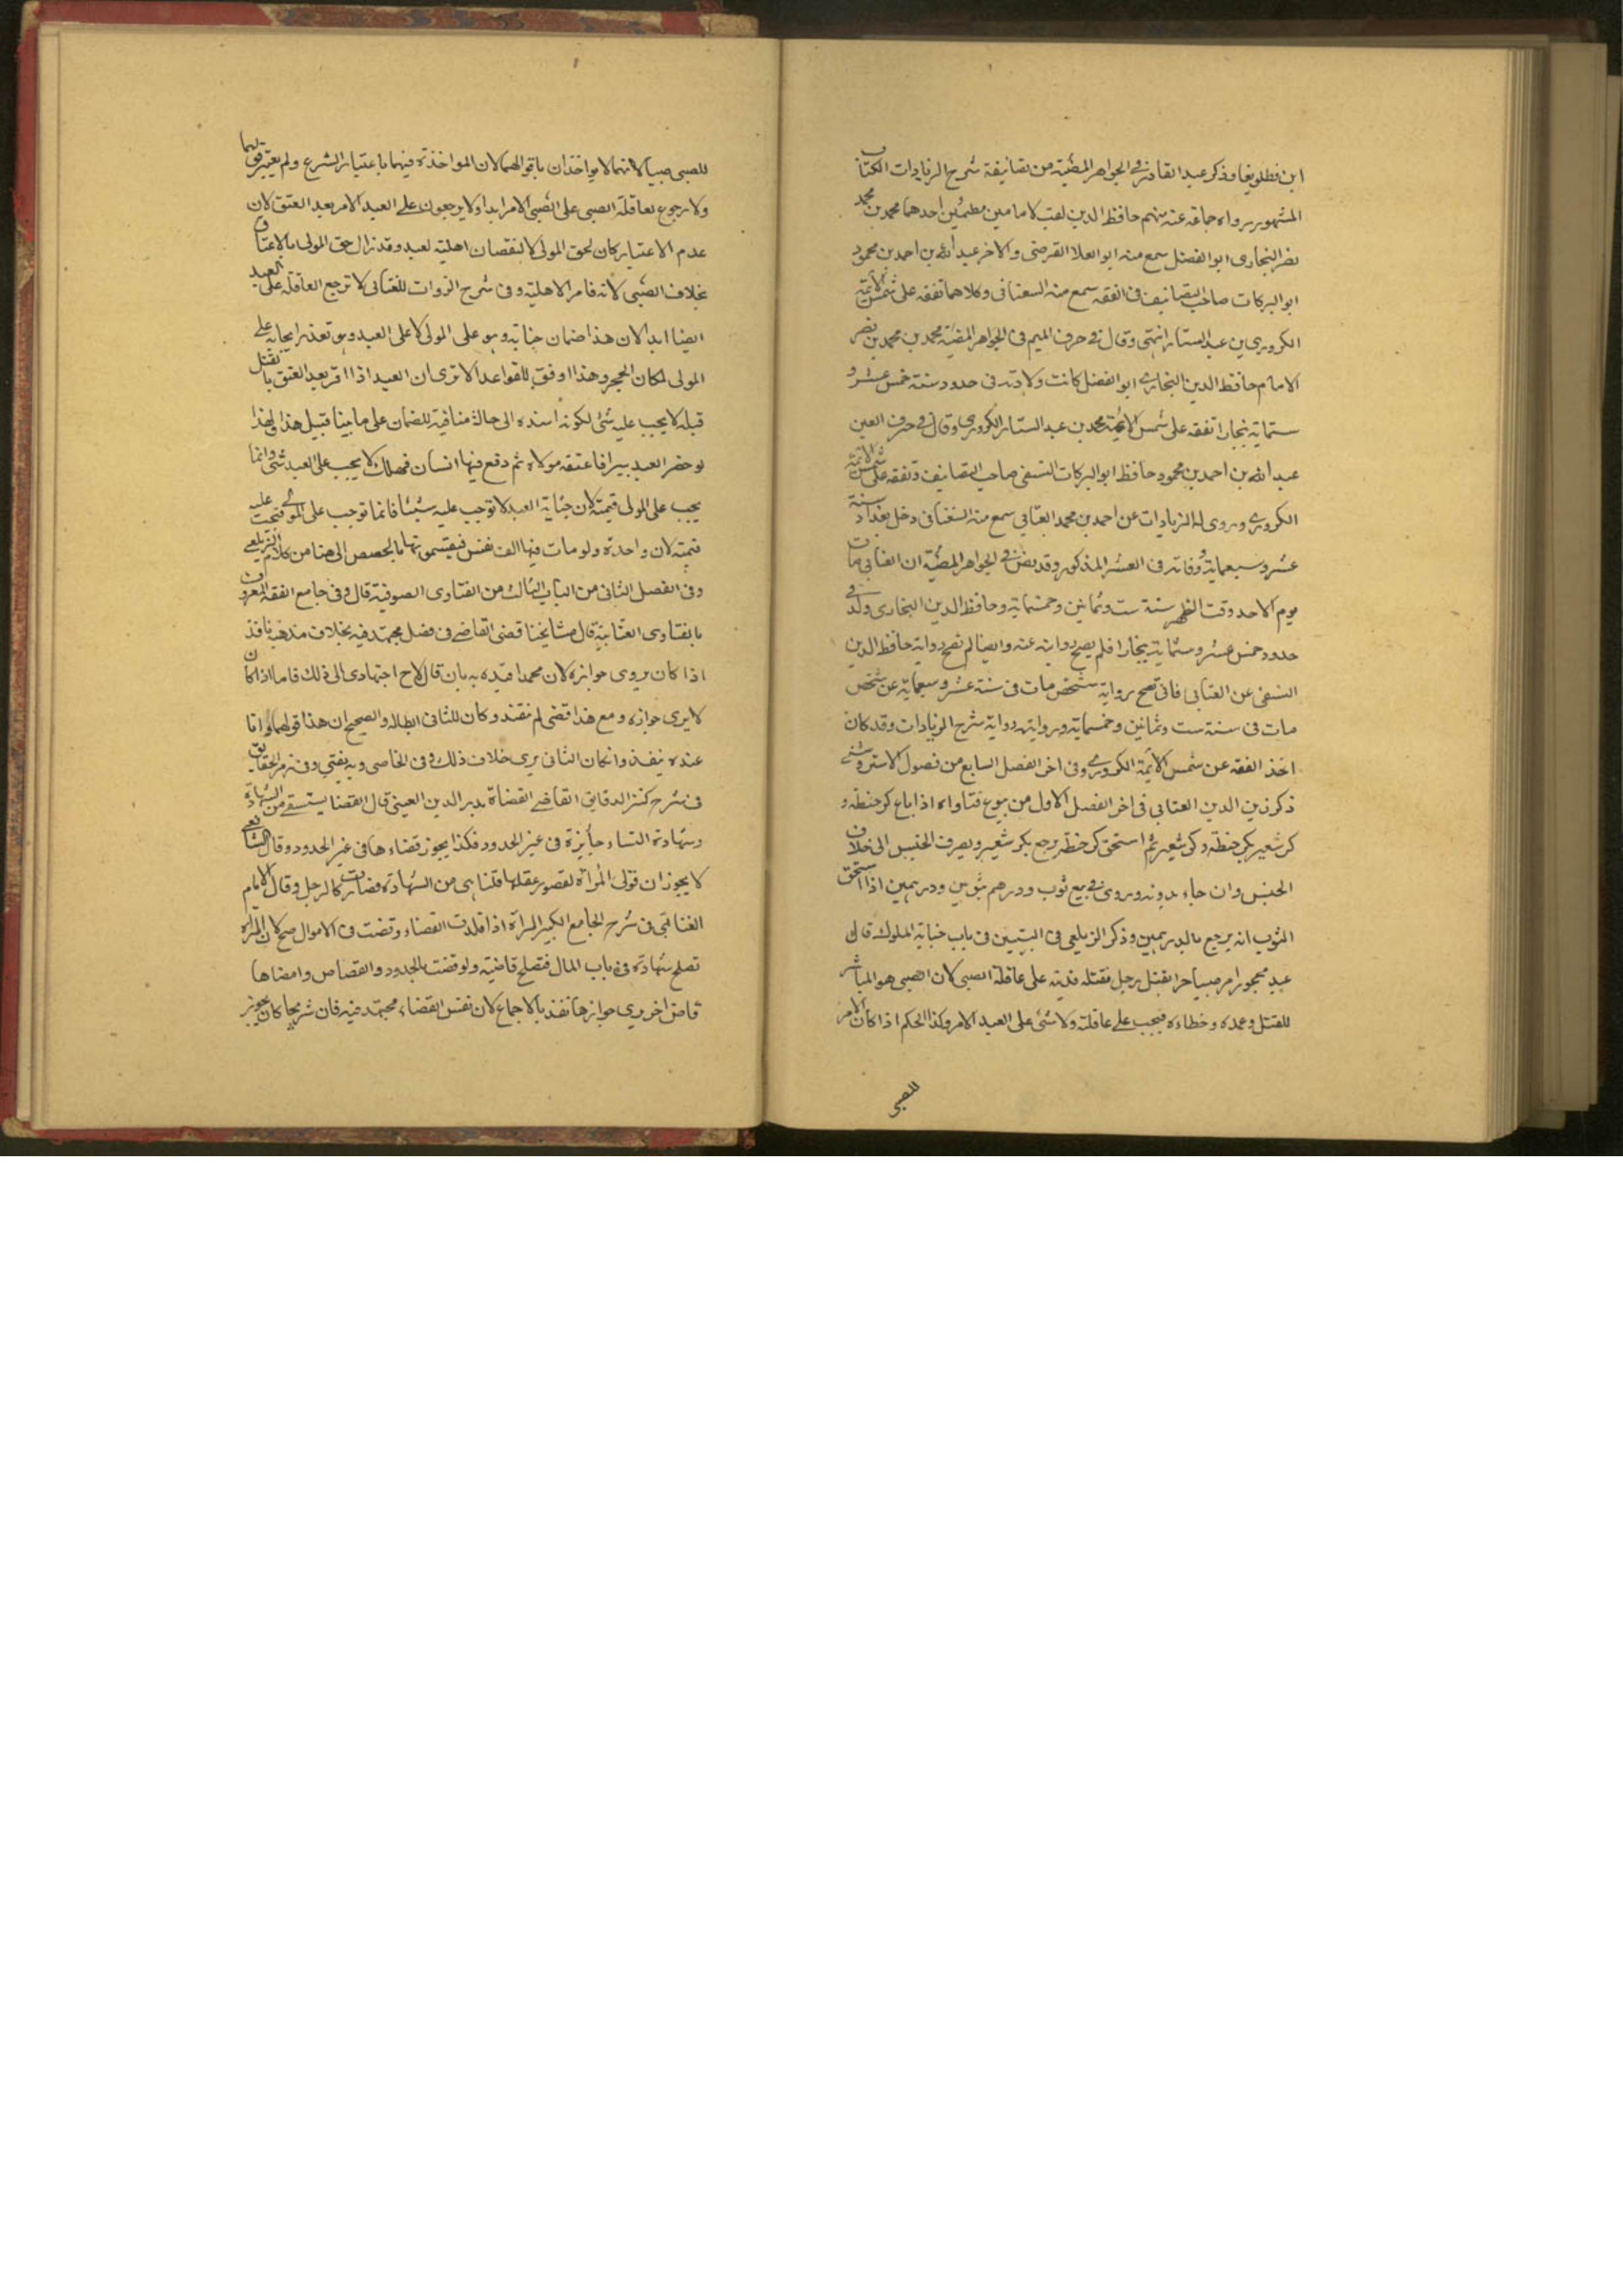 ابن قطلوبغا وذكر عبد القادر فى الجواهر المضئية من تصانيفة شرح الزيادات الكتاب
المشهور رواه جماعة عنه منهم حافظ الدين لقب لامامين احدهما محمد بن محمد
نصر البخارى ابو الفضل سمع منه ابو العلا الفرضى والاخر عبد الله بن احمد بن محمود
ابو البركات صاحب التصانيف فى الفقه سمع منه السغناقى وكلاهما تفقه على شمس الائمة
الكرورى بن عبد الستار انتهى وقال فى حرف الميم فى الجواهر المضئية محمد بن محمد بن نصر
الامام حافظ الدين البخارى ابو الفضل كانت ولادته فى حدود سنة خمس عشر و
ستماية بنجارا تفقه على شمس الائمة محمد بن عبد الستار الكرورى وقال فى حرف العين
عبد الله بن احمد بن محمود حافظ ابو البركات النسفى صاحب التصانيف وتفقه على شمس الائمة
الكرورى وروى له الزيادات عن احمد بن محمد العتابى سمع منه السغناقى دخل بغداد سنة
عشر وسبعماية ووفاته فى العشر المذكور وقد نص فى الجواهر المضئية ان العتابى مات
يوم الاحد وقت الظهر سنة ست وثمانين وخمسماية وحافظ الدين البخارى ولد فى
حدود خمس عشر وستماية بنجارا فلم يصح روايته عنه وايضا لم تصح رواية حافظ الدين
النسفى عن العتابى فانى تصح رواية شخص مات فى سنة عشر وسبعماية عن شخص
مات فى سنة ست وثمانين وخمسماية وروايته رواية شرح الزيادات وقد كان
اخذ الفقه عن شمس الائمة الكرورى وفى اخر الفصل السابع من فصول الاستروشنى
ذكر زين الدين العتابى فى اخر الفصل الاول من بيوع فتاواه اذا باع كر حنطة و
كر شعير بكر حنطة وكر شعير ثم استحق كر حنطة يرجع بكر شعير ويصرف الجنس الى خلاف
الجنس وان جاء بدونه وروى فى بيع ثوب ودرهم بثوبين ودرهمين اذا استحق
الثوب انه يرجع بالدرهمين وذكر الزيلعى فى التبيين فى باب جناية المملوك قال
عبد محجور امر صبيا حرا بقتل رجل فقتله فديته على عاقلة الصبى لان الصبى هو المباشر
للقتل وعمده وخطاءه فيجب على عاقلته ولا شئ على العبد الامر وكذا الحكم اذا كان الامر
للصبى
للصبى صبيا لانهما لا يواخذان باقوالهما لان المواخذة فيهما باعتبار الشرع ولم يعتبر قولهما
ولا رجوع لعاقلة الصبى على الصبى الامر ابدا ولا يرجعون على العبد الامر بعد العتق لان
عدم الاعتبار كان لحق المولى لا لنقصان اهلية لعبد وقد زال حق المولى بالاعتاق
بخلاف الصبى لانه قاصر الاهلية وفى شرح الزوات للعتابى لا ترجع العاقلة على العبد
ايضا ابدا لان هذا ضمان جناية وهو على المولى لا على العبد وهو تعذر ايجابه على
المولى لمكان الحجر وهذا اوفق للقواعد الا ترى ان العبد اذا اقر بعد العتق بالقتل
قبله لا يجب عليه شئ لكونه اسنده الى حالة منافية للضمان على ما بينا قبيل هذا ولهذا
لو حفر العبد بيرا فاعتقه مولاه ثم دفع فيها انسان فهلك لا يجب على العبد شئ وانما
يجب على المولى قيمته لان جناية العبد لا توجب عليه شيئا فانما توجب على المولى فيجب عليه
قيمته لان واحدة ولو مات فيها الف نفس فيقتسمونها بالحصص الى هنا من كلام الزيلعى
وفى الفصل الثانى من الباب الثالث من الفتاوى الصوفية قال وفى جامع الفقه المعروف
بالفتاوى العتابية قال مشايخنا قضى القاضى فى فصل مجتهد فيه بخلاف مذهبه نافذ
اذا كان يروى جوازه لان محمدا قيده به بان قال لاح اجتهادى الى ذلك فاما اذا كان
لا يرى جوازه ومع هذا قضى لم ينفذ وكان للثانى ابطاله والصحيح ان هذا قولهما واما
عنده ينفذ وان كان الثانى يرى خلاف ذلك وفى الخاصى وبه يفتى وفى رمز الحقايق
فى شرح كنز الدقايق القاضى القضاة بدر الدين العينى قال القضا يستسقى من الشهادة
وشهادة النساء جايزة فى غير الحدود فكذا يجوز قضاءها فى غير الحدود وقال الشافعى
لا يجوز ان تولى المراة لقصور عقلها قلنا هى من الشهادة فصارت كالرجل وقال الامام
العتابى فى شرح الجامع الكبير المراة اذا قلدت القضاء وقضت فى الاموال صح لان المراة
تصلح شهادة فى باب المال فتصلح قاضية ولو قضت بالحدود والقصاص وامضاها
قاض اخر يرى جوازها نفذ بالاجماع لان نفس القضاء مجتهد فيه فان شريحا كان يجوز